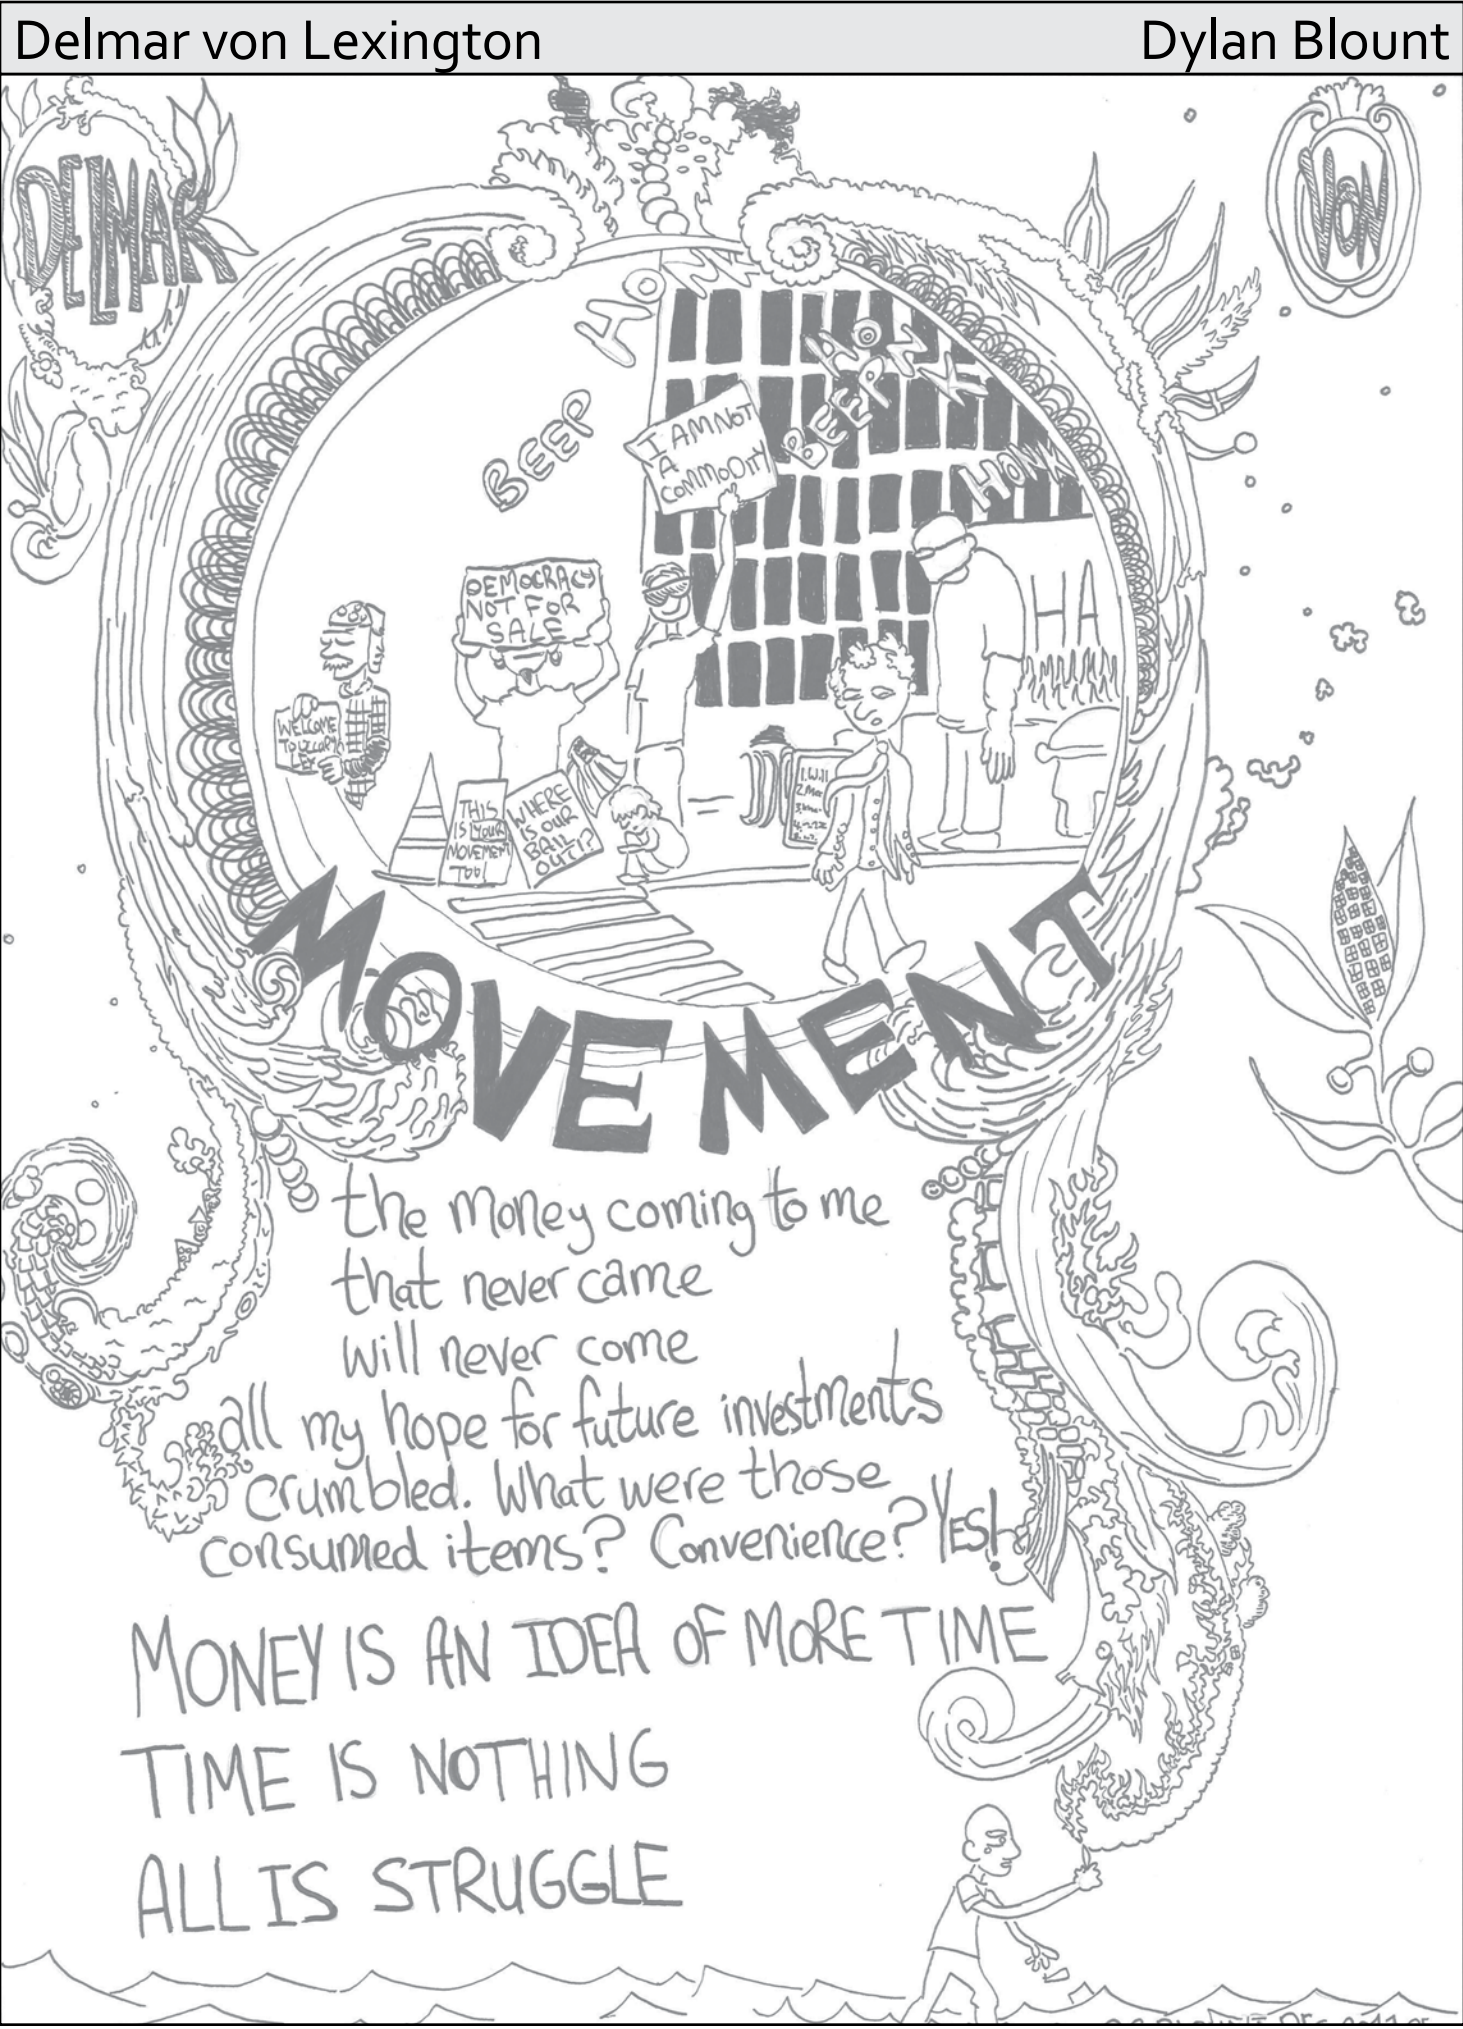 Delmar von Lexington
Dylan Blount
DELMAR
VON
HONK
BEEP
HONK
BEEP
HONK
I AM NOT
A
COMMODITY
DEMOCRACY
NOT FOR
SALE
HA
WELCOME
TO
LEX
THIS
IS YOUR
MOVEMENT
TOO!
WHERE
IS OUR
BAIL
OUT!?
1. Will
2.
MOVEMENT
the money coming to me
that never came
will never come
all my hope for future investments
crumbled. What were those
consumed items? Convenience? YES!
MONEY IS AN IDEA OF MORE TIME
TIME IS NOTHING
ALL IS STRUGGLE